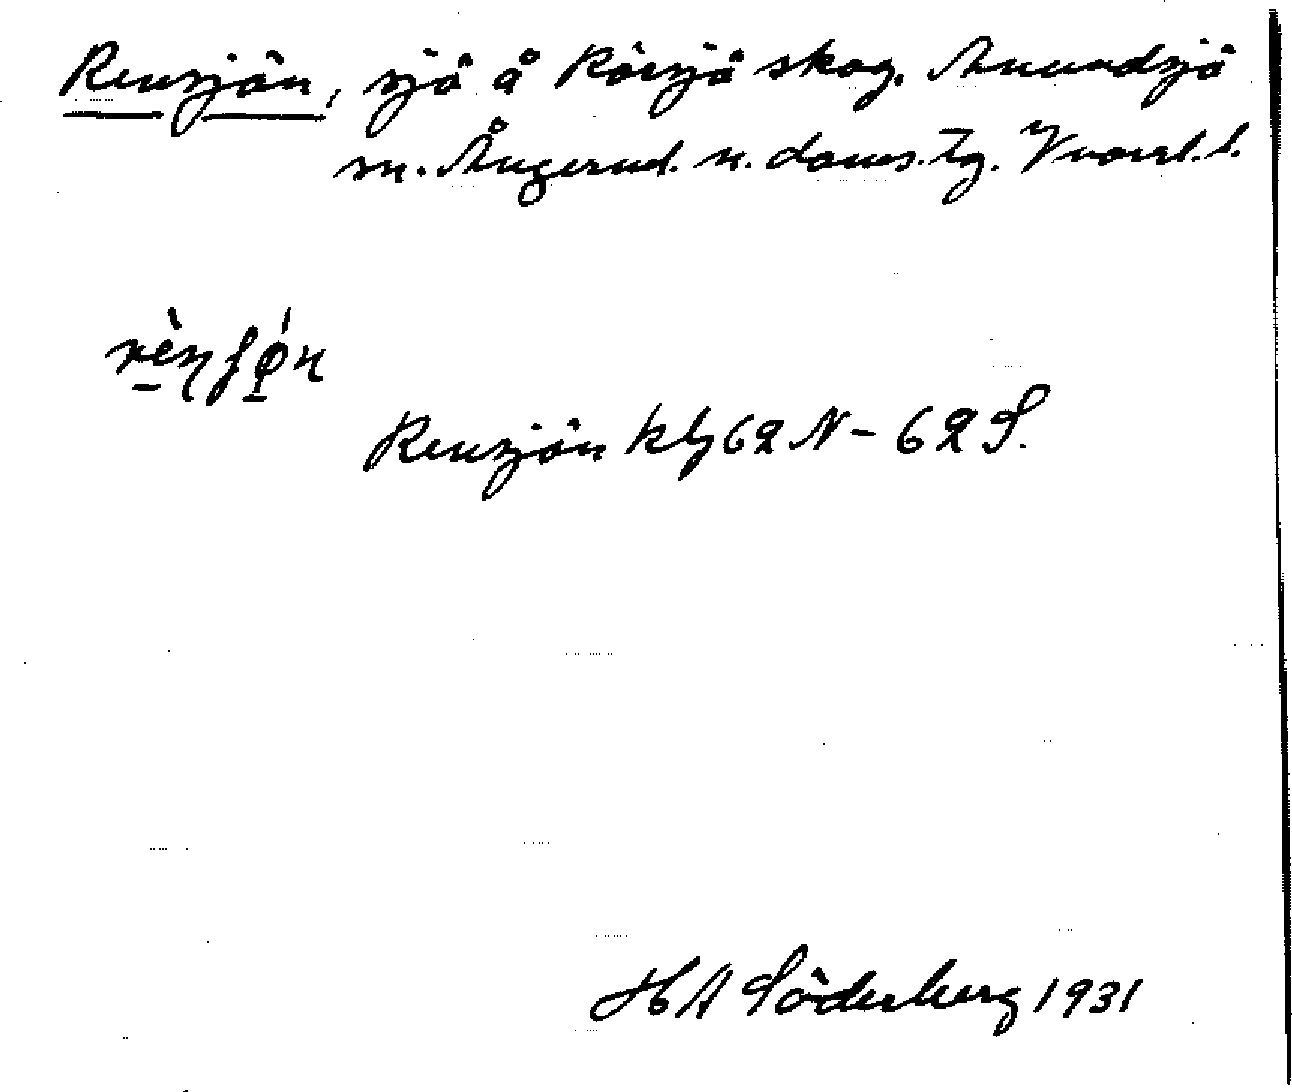 Rensjön, sjö å Körsjö skog, Anundsjö
sn. Ångerml. n. doms. tg. Vnorrl. l.
Rensjön klj 62 N – 62 S.
H A Söderberg 1931